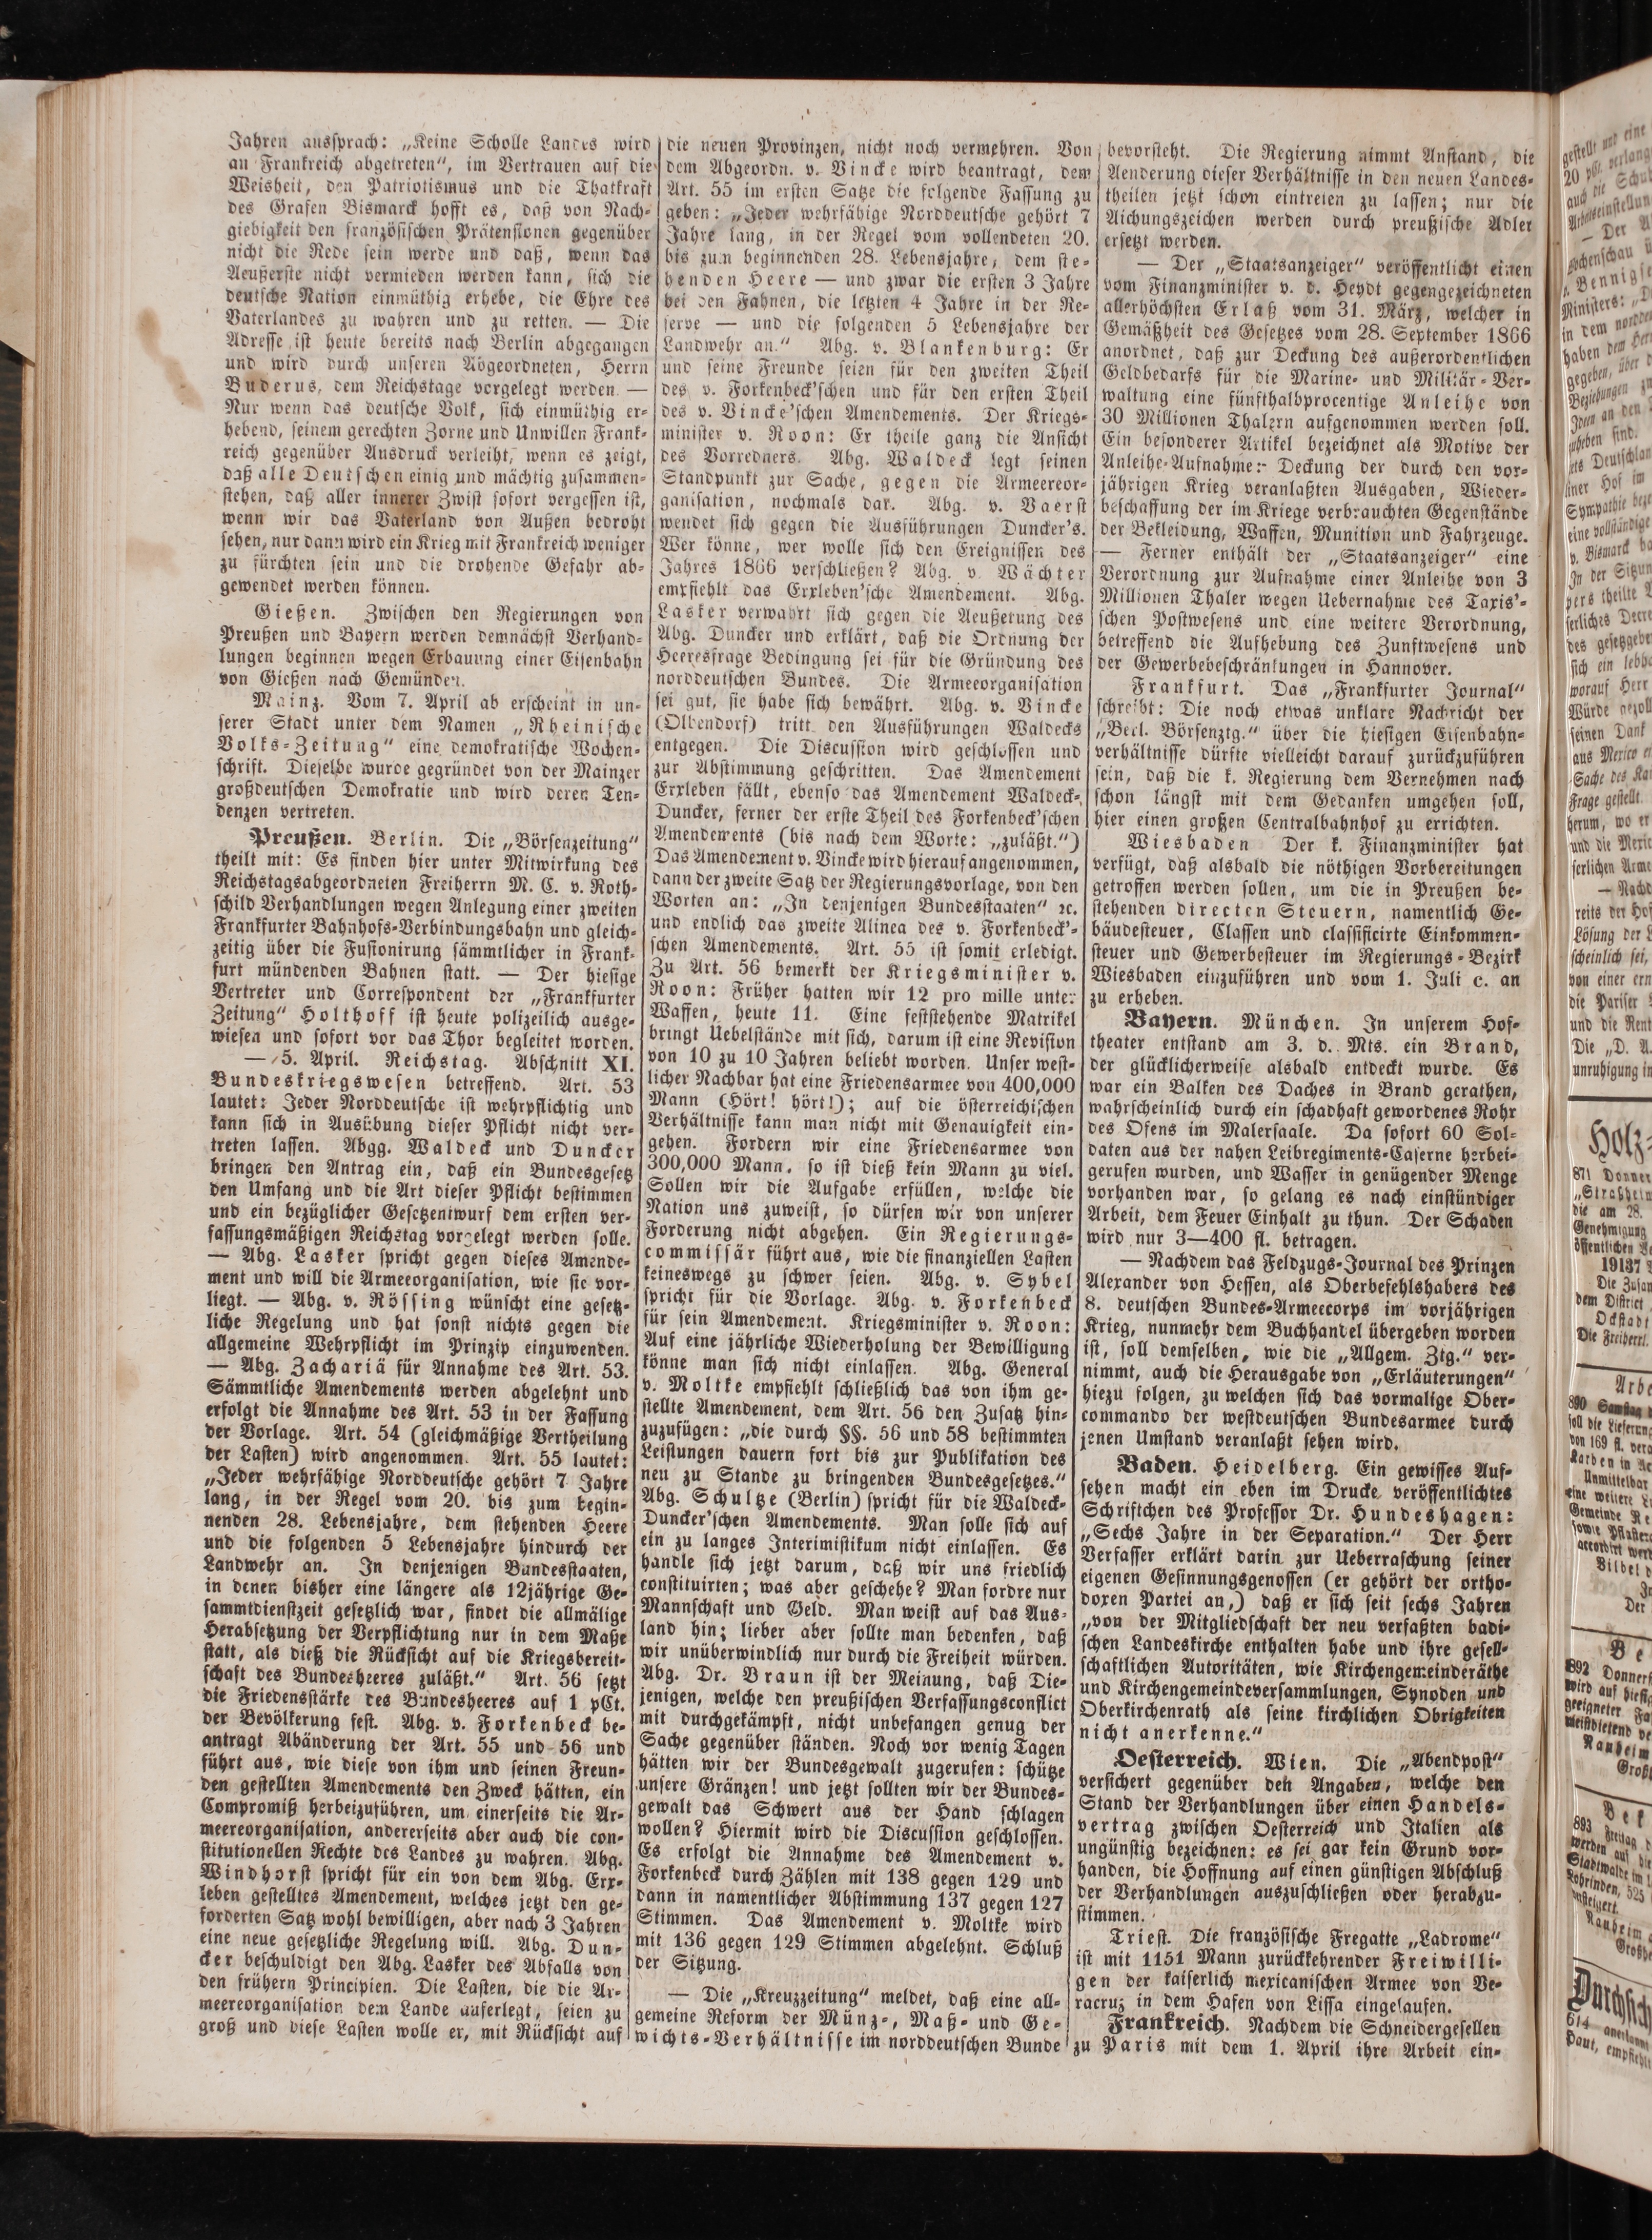 Jahren ausſprach: „Keine Scholle Landes wird
an Frankreich abgetreten“, im Vertrauen auf die
Weisheit, den Patriotismus und die Thatkraft
des Grafen Bismarck hofft es, daß von Nach-
giebigkeit den franzöſiſchen Prätenſionen gegenüber
nicht die Rede ſein werde und daß, wenn das
Aeußerſte nicht vermieden werden kann, ſich die
deutſche Nation einmüthig erhebe, die Ehre des
Vaterlandes zu wahren und zu retten. — Die
Adreſſe iſt heute bereits nach Berlin abgegangen
und wird durch unſeren Abgeordneten, Herrn
Buderus, dem Reichstage vorgelegt werden. —
Nur wenn das deutſche Volk, ſich einmüthig er-
hebend, ſeinem gerechten Zorne und Unwillen Frank-
reich gegenüber Ausdruck verleiht, wenn es zeigt,
daß alle Deutſchen einig und mächtig zuſammen-
ſtehen, daß aller innerer Zwiſt ſofort vergeſſen iſt,
wenn wir das Vaterland von Außen bedroht
ſehen, nur dann wird ein Krieg mit Frankreich weniger
zu fürchten ſein und die drohende Gefahr ab-
gewendet werden können.
Gießen. Zwiſchen den Regierungen von
Preußen und Bayern werden demnächſt Verhand-
lungen beginnen wegen Erbauung einer Eiſenbahn
von Gießen nach Gemünden.
Mainz. Vom 7. April ab erſcheint in un-
ſerer Stadt unter dem Namen „Rheiniſche
Volks-Zeitung“ eine demokratiſche Wochen-
ſchrift. Dieſelbe wurde gegründet von der Mainzer
großdeutſchen Demokratie und wird deren Ten-
denzen vertreten.
Preußen. Berlin. Die „Börſenzeitung“
theilt mit: Es finden hier unter Mitwirkung des
Reichstagsabgeordneten Freiherrn M. C. v. Roth-
ſchild Verhandlungen wegen Anlegung einer zweiten
Frankfurter Bahnhofs-Verbindungsbahn und gleich-
zeitig über die Fuſionirung ſämmtlicher in Frank-
furt mündenden Bahnen ſtatt. — Der hieſige
Vertreter und Correſpondent der „Frankfurter
Zeitung“ Holthoff iſt heute polizeilich ausge-
wieſen und ſofort vor das Thor begleitet worden.
— 5. April. Reichstag. Abſchnitt XI.
Bundeskriegsweſen betreffend. Art. 53
lautet: Jeder Norddeutſche iſt wehrpflichtig und
kann ſich in Ausübung dieſer Pflicht nicht ver-
treten laſſen. Abgg. Waldeck und Duncker
bringen den Antrag ein, daß ein Bundesgeſetz
den Umfang und die Art dieſer Pflicht beſtimmen
und ein bezüglicher Geſetzentwurf dem erſten ver-
faſſungsmäßigen Reichstag vorgelegt werden ſolle.
— Abg. Lasker ſpricht gegen dieſes Amende-
ment und will die Armeeorganiſation, wie ſie vor-
liegt. — Abg. v. Röſſing wünſcht eine geſetz-
liche Regelung und hat ſonſt nichts gegen die
allgemeine Wehrpflicht im Prinzip einzuwenden.
— Abg. Zachariä für Annahme des Art. 53.
Sämmtliche Amendements werden abgelehnt und
erfolgt die Annahme des Art. 53 in der Faſſung
der Vorlage. Art. 54 (gleichmäßige Vertheilung
der Laſten) wird angenommen. Art. 55 lautet:
„Jeder wehrfähige Norddeutſche gehört 7 Jahre
lang, in der Regel vom 20. bis zum begin-
nenden 28. Lebensjahre, dem ſtehenden Heere
und die folgenden 5 Lebensjahre hindurch der
Landwehr an. In denjenigen Bundesſtaaten,
in denen bisher eine längere als 12jährige Ge-
ſammtdienſtzeit geſetzlich war, findet die allmälige
Herabſetzung der Verpflichtung nur in dem Maße
ſtatt, als dieß die Rückſicht auf die Kriegsbereit-
ſchaft des Bundesheeres zuläßt.“ Art. 56 ſetzt
die Friedensſtärke des Bundesheeres auf 1 pCt.
der Bevölkerung feſt. Abg. v. Forkenbeck be-
antragt Abänderung der Art. 55 und 56 und
führt aus, wie dieſe von ihm und ſeinen Freun-
den geſtellten Amendements den Zweck hätten, ein
Compromiß herbeizuführen, um einerſeits die Ar-
meereorganiſation, andererſeits aber auch die con-
ſtitutionellen Rechte des Landes zu wahren. Abg.
Windhorſt ſpricht für ein von dem Abg. Erx-
leben geſtelltes Amendement, welches jetzt den ge-
forderten Satz wohl bewilligen, aber nach 3 Jahren
eine neue geſetzliche Regelung will. Abg. Dun-
cker beſchuldigt den Abg. Lasker des Abfalls von
den frühern Principien. Die Laſten, die die Ar-
meereorganiſation dem Lande auferlegt, ſeien zu
groß und dieſe Laſten wolle er, mit Rückſicht auf
die neuen Provinzen, nicht noch vermehren. Von
dem Abgeordn. v. Vincke wird beantragt, dem
Art. 55 im erſten Satze die folgende Faſſung zu
geben: „Jeder wehrfähige Norddeutſche gehört 7
Jahre lang, in der Regel vom vollendeten 20.
bis zum beginnenden 28. Lebensjahre, dem ſte-
henden Heere — und zwar die erſten 3 Jahre
bei den Fahnen, die letzten 4 Jahre in der Re-
ſerve — und die folgenden 5 Lebensjahre der
Landwehr an.“ Abg. v. Blankenburg: Er
und ſeine Freunde ſeien für den zweiten Theil
des v. Forkenbeck'ſchen und für den erſten Theil
des v. Vincke'ſchen Amendements. Der Kriegs-
miniſter v. Roon: Er theile ganz die Anſicht
des Vorredners. Abg. Waldeck legt ſeinen
Standpunkt zur Sache, gegen die Armeereor-
ganiſation, nochmals dar. Abg. v. Vaerſt
wendet ſich gegen die Ausführungen Duncker's.
Wer könne, wer wolle ſich den Ereigniſſen des
Jahres 1866 verſchließen? Abg. v. Wächter
empfiehlt das Erxleben'ſche Amendement. Abg.
Lasker verwahrt ſich gegen die Aeußerung des
Abg. Duncker und erklärt, daß die Ordnung der
Heeresfrage Bedingung ſei für die Gründung des
norddeutſchen Bundes. Die Armeeorganiſation
ſei gut, ſie habe ſich bewährt. Abg. v. Vincke
(Olbendorf) tritt den Ausführungen Waldecks
entgegen. Die Discuſſion wird geſchloſſen und
zur Abſtimmung geſchritten. Das Amendement
Erxleben fällt, ebenſo das Amendement Waldeck-
Duncker, ferner der erſte Theil des Forkenbeck'ſchen
Amendements (bis nach dem Worte: „zuläßt.“)
Das Amendement v. Vincke wird hierauf angenommen,
dann der zweite Satz der Regierungsvorlage, von den
Worten an: „In denjenigen Bundesſtaaten“ ꝛc.
und endlich das zweite Alinea des v. Forkenbeck'-
ſchen Amendements. Art. 55 iſt ſomit erledigt.
Zu Art. 56 bemerkt der Kriegsminiſter v.
Roon: Früher hatten wir 12 pro mille unter
Waffen, heute 11. Eine feſtſtehende Matrikel
bringt Uebelſtände mit ſich, darum iſt eine Reviſion
von 10 zu 10 Jahren beliebt worden. Unſer weſt-
licher Nachbar hat eine Friedensarmee von 400,000
Mann (Hört! hört!); auf die öſterreichiſchen
Verhältniſſe kann man nicht mit Genauigkeit ein-
gehen. Fordern wir eine Friedensarmee von
300,000 Mann, ſo iſt dieß kein Mann zu viel.
Sollen wir die Aufgabe erfüllen, welche die
Nation uns zuweiſt, ſo dürfen wir von unſerer
Forderung nicht abgehen. Ein Regierungs-
commiſſär führt aus, wie die finanziellen Laſten
keineswegs zu ſchwer ſeien. Abg. v. Sybel
ſpricht für die Vorlage. Abg. v. Forkenbeck
für ſein Amendement. Kriegsminiſter v. Roon:
Auf eine jährliche Wiederholung der Bewilligung
könne man ſich nicht einlaſſen. Abg. General
v. Moltke empfiehlt ſchließlich das von ihm ge-
ſtellte Amendement, dem Art. 56 den Zuſatz hin-
zuzufügen: „die durch §§. 56 und 58 beſtimmten
Leiſtungen dauern fort bis zur Publikation des
neu zu Stande zu bringenden Bundesgeſetzes.“
Abg. Schultze (Berlin) ſpricht für die Waldeck-
Duncker'ſchen Amendements. Man ſolle ſich auf
ein zu langes Interimiſtikum nicht einlaſſen. Es
handle ſich jetzt darum, daß wir uns friedlich
conſtituirten; was aber geſchehe? Man fordre nur
Mannſchaft und Geld. Man weiſt auf das Aus-
land hin; lieber aber ſollte man bedenken, daß
wir unüberwindlich nur durch die Freiheit würden.
Abg. Dr. Braun iſt der Meinung, daß Die-
jenigen, welche den preußiſchen Verfaſſungsconflict
mit durchgekämpft, nicht unbefangen genug der
Sache gegenüber ſtänden. Noch vor wenig Tagen
hätten wir der Bundesgewalt zugerufen: ſchütze
unſere Gränzen! und jetzt ſollten wir der Bundes-
gewalt das Schwert aus der Hand ſchlagen
wollen? Hiermit wird die Discuſſion geſchloſſen.
Es erfolgt die Annahme des Amendement v.
Forkenbeck durch Zählen mit 138 gegen 129 und
dann in namentlicher Abſtimmung 137 gegen 127
Stimmen. Das Amendement v. Moltke wird
mit 136 gegen 129 Stimmen abgelehnt. Schluß
der Sitzung.
— Die „Kreuzzeitung“ meldet, daß eine all-
gemeine Reform der Münz-, Maß- und Ge-
wichts-Verhältniſſe im norddeutſchen Bunde
bevorſteht. Die Regierung nimmt Anſtand, die
Aenderung dieſer Verhältniſſe in den neuen Landes-
theilen jetzt ſchon eintreten zu laſſen; nur die
Aichungszeichen werden durch preußiſche Adler
erſetzt werden.
— Der „Staatsanzeiger“ veröffentlicht einen
vom Finanzminiſter v. d. Heydt gegengezeichneten
allerhöchſten Erlaß vom 31. März, welcher in
Gemäßheit des Geſetzes vom 28. September 1866
anordnet, daß zur Deckung des außerordentlichen
Geldbedarfs für die Marine- und Militär-Ver-
waltung eine fünfthalbprocentige Anleihe von
30 Millionen Thalern aufgenommen werden ſoll.
Ein beſonderer Artikel bezeichnet als Motive der
Anleihe-Aufnahme: Deckung der durch den vor-
jährigen Krieg veranlaßten Ausgaben, Wieder-
beſchaffung der im Kriege verbrauchten Gegenſtände
der Bekleidung, Waffen, Munition und Fahrzeuge.
— Ferner enthält der „Staatsanzeiger“ eine
Verordnung zur Aufnahme einer Anleihe von 3
Millionen Thaler wegen Uebernahme des Taxis'-
ſchen Poſtweſens und eine weitere Verordnung,
betreffend die Aufhebung des Zunftweſens und
der Gewerbebeſchränkungen in Hannover.
Frankfurt. Das „Frankfurter Journal“
ſchreibt: Die noch etwas unklare Nachricht der
„Berl. Börſenztg.“ über die hieſigen Eiſenbahn-
verhältniſſe dürfte vielleicht darauf zurückzuführen
ſein, daß die k. Regierung dem Vernehmen nach
ſchon längſt mit dem Gedanken umgehen ſoll,
hier einen großen Centralbahnhof zu errichten.
Wiesbaden Der k. Finanzminiſter hat
verfügt, daß alsbald die nöthigen Vorbereitungen
getroffen werden ſollen, um die in Preußen be-
ſtehenden directen Steuern, namentlich Ge-
bäudeſteuer, Claſſen und claſſificirte Einkommen-
ſteuer und Gewerbeſteuer im Regierungs-Bezirk
Wiesbaden einzuführen und vom 1. Juli c. an
zu erheben.
Bayern. München. In unſerem Hof-
theater entſtand am 3. d. Mts. ein Brand,
der glücklicherweiſe alsbald entdeckt wurde. Es
war ein Balken des Daches in Brand gerathen,
wahrſcheinlich durch ein ſchadhaft gewordenes Rohr
des Ofens im Malerſaale. Da ſofort 60 Sol-
daten aus der nahen Leibregiments-Caſerne herbei-
gerufen wurden, und Waſſer in genügender Menge
vorhanden war, ſo gelang es nach einſtündiger
Arbeit, dem Feuer Einhalt zu thun. Der Schaden
wird nur 3—400 fl. betragen.
— Nachdem das Feldzugs-Journal des Prinzen
Alexander von Heſſen, als Oberbefehlshabers des
8. deutſchen Bundes-Armeecorps im vorjährigen
Krieg, nunmehr dem Buchhandel übergeben worden
iſt, ſoll demſelben, wie die „Allgem. Ztg.“ ver-
nimmt, auch die Herausgabe von „Erläuterungen“
hiezu folgen, zu welchen ſich das vormalige Ober-
commando der weſtdeutſchen Bundesarmee durch
jenen Umſtand veranlaßt ſehen wird.
Baden. Heidelberg. Ein gewiſſes Auf-
ſehen macht ein eben im Drucke veröffentlichtes
Schriftchen des Profeſſor Dr. Hundeshagen:
„Sechs Jahre in der Separation.“ Der Herr
Verfaſſer erklärt darin zur Ueberraſchung ſeiner
eigenen Geſinnungsgenoſſen (er gehört der ortho-
doxen Partei an,) daß er ſich ſeit ſechs Jahren
„von der Mitgliedſchaft der neu verfaßten badi-
ſchen Landeskirche enthalten habe und ihre geſell-
ſchaftlichen Autoritäten, wie Kirchengemeinderäthe
und Kirchengemeindeverſammlungen, Synoden und
Oberkirchenrath als ſeine kirchlichen Obrigkeiten
nicht anerkenne.“
Oeſterreich. Wien. Die „Abendpoſt“
verſichert gegenüber den Angaben, welche den
Stand der Verhandlungen über einen Handels-
vertrag zwiſchen Oeſterreich und Italien als
ungünſtig bezeichnen: es ſei gar kein Grund vor-
handen, die Hoffnung auf einen günſtigen Abſchluß
der Verhandlungen auszuſchließen oder herabzu-
ſtimmen.
Trieſt. Die franzöſiſche Fregatte „Ladrome“
iſt mit 1151 Mann zurückkehrender Freiwilli-
gen der kaiſerlich mexicaniſchen Armee von Ve-
racruz in dem Hafen von Liſſa eingelaufen.
Frankreich. Nachdem die Schneidergeſellen
zu Paris mit dem 1. April ihre Arbeit ein-